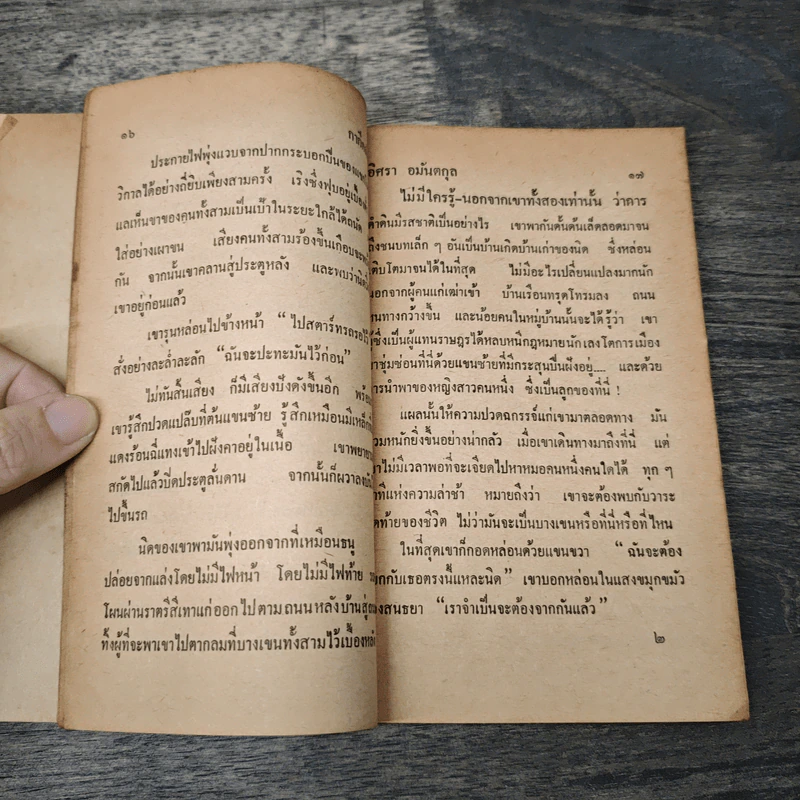 ๑๖
ประกายไฟพุ่งแวบจากปากกระบอกปืนของ
วิกาลได้อย่างถี่ยิบเพียงสามครั้ง เริงซึ่งฟุบอยู่เบื้อง
แลเห็นขาของคนทั้งสามเป็นเป้าในระยะใกล้ได้ถนัด
ใส่อย่างเผาขน เสียงคนทั้งสามร้องขึ้นเกือบจะ
กัน จากนั้นเขาคลานสู่ประตูหลัง และพบว่านิด
เขาอยู่ก่อนแล้ว
เขารุนหล่อนไปข้างหน้า “ ไปสตาร์ทรถรอไว้
สั่งอย่างละล่ำละลัก “ฉันจะปะทะมันไว้ก่อน”
ไม่ทันสิ้นเสียง ก็มีเสียงปังดังขึ้นอีก พร้อม
เขารู้สึกปวดแปล๊บที่ต้นแขนซ้าย รู้สึกเหมือนมีเหล็ก
แดงร้อนฉี่แทงเข้าไปฝังคาอยู่ในเนื้อ เขาพยายาม
สกัดไปแล้วปิดประตูลั่นดาน จากนั้นก็ผวาลงบัน
ไปขึ้นรถ
นิดของเขาพามันพุ่งออกจากที่เหมือนธนู
ปล่อยจากแล่งโดยไม่มีไฟหน้า โดยไม่มีไฟท้าย
โผนผ่านราตรีสีเทาแก่ออกไปตามถนนหลังบ้านสู่
ทิ้งผู้ที่จะพาเขาไปตากลมที่บางเขนทั้งสามไว้เบื้องหลัง
อิศรา อมันตกุล
๑๗
ไม่มีใครรู้–นอกจากเขาทั้งสองเท่านั้น ว่าการ
ดำดินมีรสชาติเป็นอย่างไร เขาพากันดั้นด้นเล็ดลอดมาจน
ถึงชนบทเล็ก ๆ อันเป็นบ้านเกิดบ้านเก่าของนิด ซึ่งหล่อน
เติบโตมาจนได้ในที่สุด ไม่มีอะไรเปลี่ยนแปลงมากนัก
นอกจากผู้คนแก่เฒ่าเข้า บ้านเรือนทรุดโทรมลง ถนน
หนทางกว้างขึ้น และน้อยคนในหมู่บ้านนั้นจะได้รู้ว่า เขา
ผู้ซึ่งเป็นผู้แทนราษฎรได้หลบหนีกฎหมายนักเลงโตการเมือง
มาซุ่มซ่อนที่นี่ด้วยแขนซ้ายที่มีกระสุนปืนฝังอยู่.... และด้วย
การนำพาของหญิงสาวคนหนึ่ง ซึ่งเป็นลูกของที่นี่ !
แผลนั้นให้ความปวดฉกรรจ์แก่เขามาตลอดทาง มัน
บวมหนักยิ่งขึ้นอย่างน่ากลัว เมื่อเขาเดินทางมาถึงที่นี่ แต่
เขาไม่มีเวลาพอที่จะเจียดไปหาหมอคนหนึ่งคนใดได้ ทุก ๆ
นาทีแห่งความล่าช้า หมายถึงว่า เขาจะต้องพบกับวาระ
สุดท้ายของชีวิต ไม่ว่ามันจะเป็นบางเขนหรือที่นี่หรือที่ไหน
ในที่สุดเขาก็กอดหล่อนด้วยแขนขวา “ ฉันจะต้อง
จากกับเธอตรงนี้แหละนิด” เขาบอกหล่อนในแสงขมุกขมัว
ของสนธยา “เราจำเป็นจะต้องจากกันแล้ว”
๒